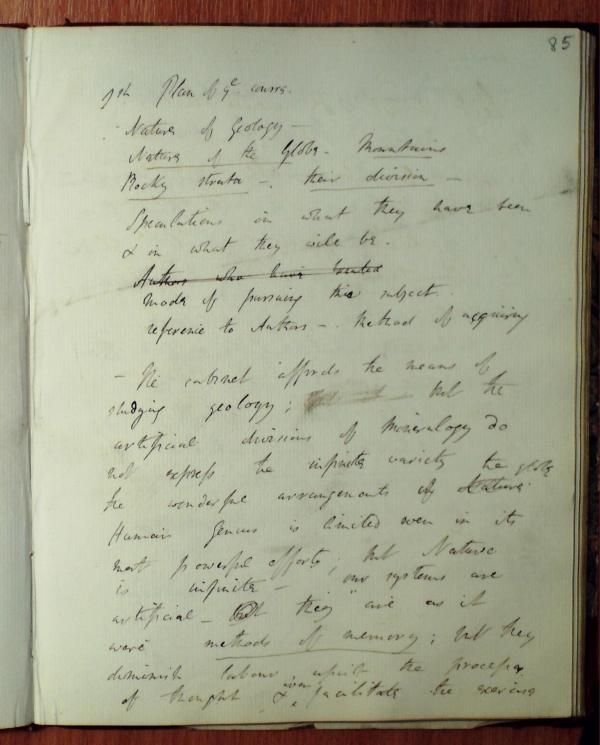 85
1st Plan of ye course.
Nature of Geology —
Nature of the Globe - Mountains
Rocky strata -. their division -
Speculations on what they have been
& on what they will be.
Authors who have treated
mode of pursuing this subject.
reference to Authors -. Method of acquiring
- The cabinet affords the means of
studying geology; but the
artificial divisions of mineralogy do
not express the infinite variety the globe
the wonderful arrangements of Nature.
Human Genius is limited even in its
most powerful efforts; but Nature
is infinite - our systems are
artificial - But they are as it
were methods of memory; but they
diminish labour the process
of thought & even facilitate the exercise